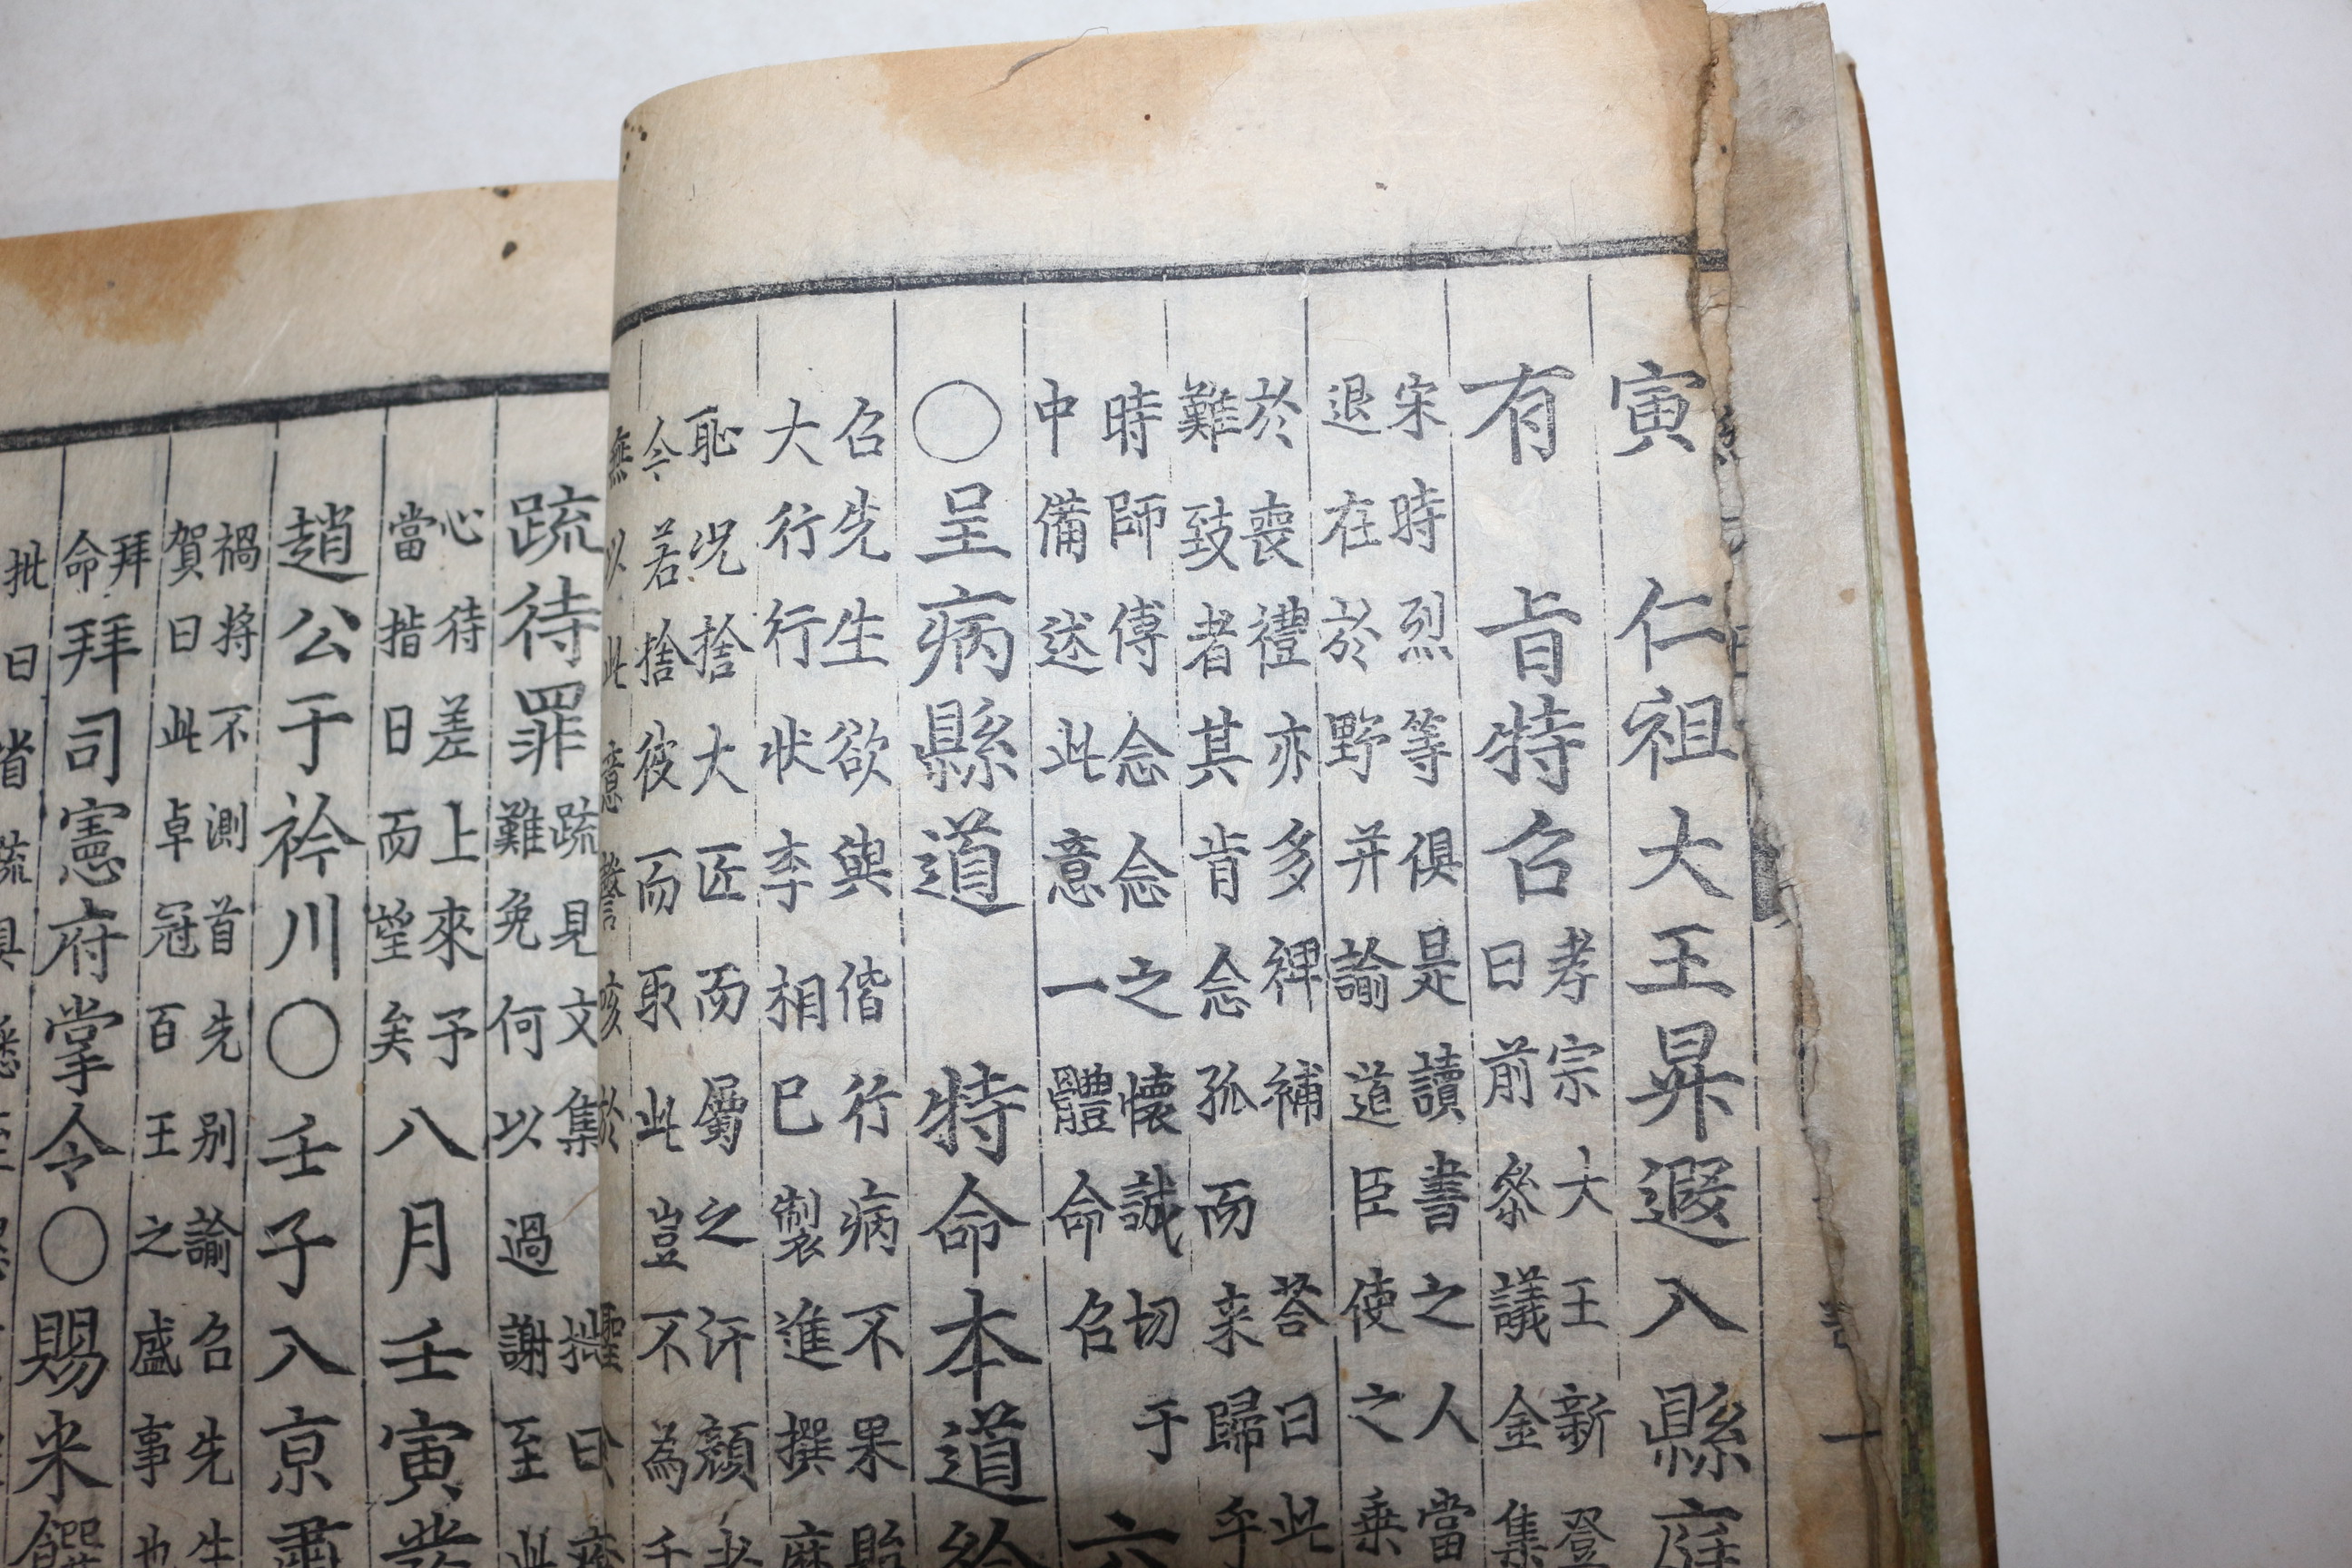 寅 仁祖大王昇遐入縣庭
有 旨特召
孝宗大王新登
曰前參議金集
宋時烈等俱是讀書之人當
退在於野并諭道臣使之乘
於喪禮亦多裨補 荅曰此
難致者其肯念孤而来歸乎
時師傅念念之懷誠切于
中備述此意一體命召
六
○呈病縣道 特命本道給
召先生欲與偕行病不果貽
大行行狀李相已製進撰
恥況捨大匠而屬之汗顔
今若捨彼而取此豈不為千
疏待罪
疏見文集 批曰
難免何以過謝至此
心待差上來予
當指日而望矣
八月壬寅發
趙公于衿川○壬子入京肅
禍將不測首先别諭召先生
賀曰此卓冠百王之盛事也
拜
命
拜司憲府掌令○賜米饌
批曰省疏具悉